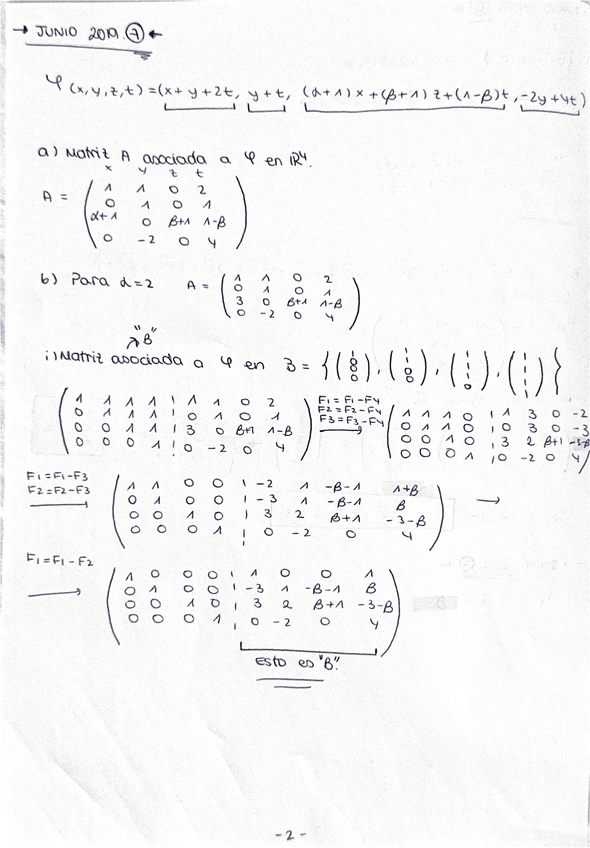 → JUNIO 2019. ⑦ ←
φ(x,y,z,t) = (x+y+2t, y+t, (α+1)x+(β+1)z+(1-β)t, -2y+4t)
a) Matriz A asociada a φ en ℝ⁴.
x y z t
A = ( 1 1 0 2
0 1 0 1
α+1 0 β+1 1-β
0 -2 0 4 )
b) Para α=2 A = ( 1 1 0 2
0 1 0 1
3 0 β+1 1-β
0 -2 0 4 )
"B"
i) Matriz asociada a φ en B = { (1 0 0 0), (1 1 0 0), (1 1 1 0), (1 1 1 1) }
( 1 1 1 1 | 1 1 0 2
0 1 1 1 | 0 1 0 1
0 0 1 1 | 3 0 β+1 1-β
0 0 0 1 | 0 -2 0 4 )
F1 = F1-F4
F2 = F2-F4
F3 = F3-F4
→
( 1 1 1 0 | 1 3 0 -2
0 1 1 0 | 0 3 0 -3
0 0 1 0 | 3 2 β+1 -3-β
0 0 0 1 | 0 -2 0 4 )
F1 = F1-F3
F2 = F2-F3
→
( 1 1 0 0 | -2 1 -β-1 1+β
0 1 0 0 | -3 1 -β-1 β
0 0 1 0 | 3 2 β+1 -3-β
0 0 0 1 | 0 -2 0 4 ) →
F1 = F1-F2
→
( 1 0 0 0 | 1 0 0 1
0 1 0 0 | -3 1 -β-1 β
0 0 1 0 | 3 2 β+1 -3-β
0 0 0 1 | 0 -2 0 4 )
Esto es "B".
-2-